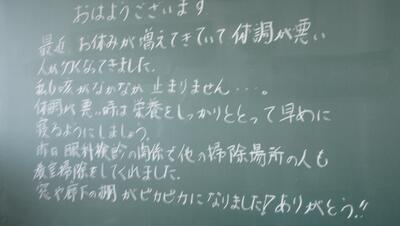 おはようございます
最近、お休みが増えてきていて体調が悪い
人が多くなってきました。
私も咳がなかなか止まりません・・・。
体調が悪い時は栄養をしっかりととって早めに
寝るようにしましょう。
昨日眼科検診の関係で他の掃除場所の人も
教室掃除をしてくれました。
窓や廊下の棚がピカピカになりました!ありがとう!!